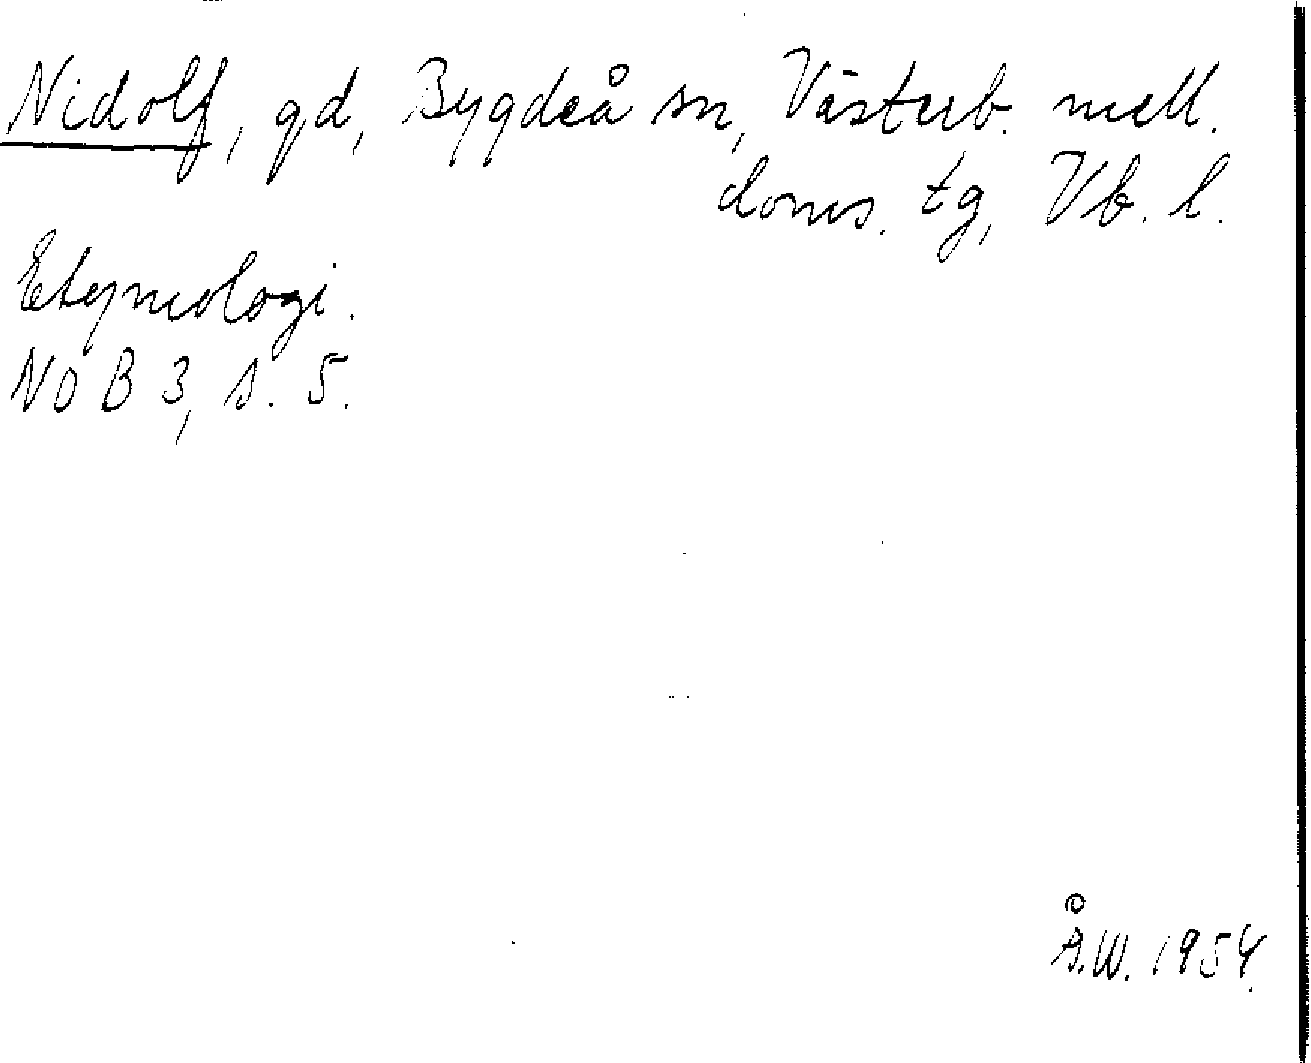 Nidolf, gd, Bygdeå sn, Västerb. mell.
doms. tg, Vb. l.
Etymologi.
NOB 3, s. 5.
Å.W. 1954.